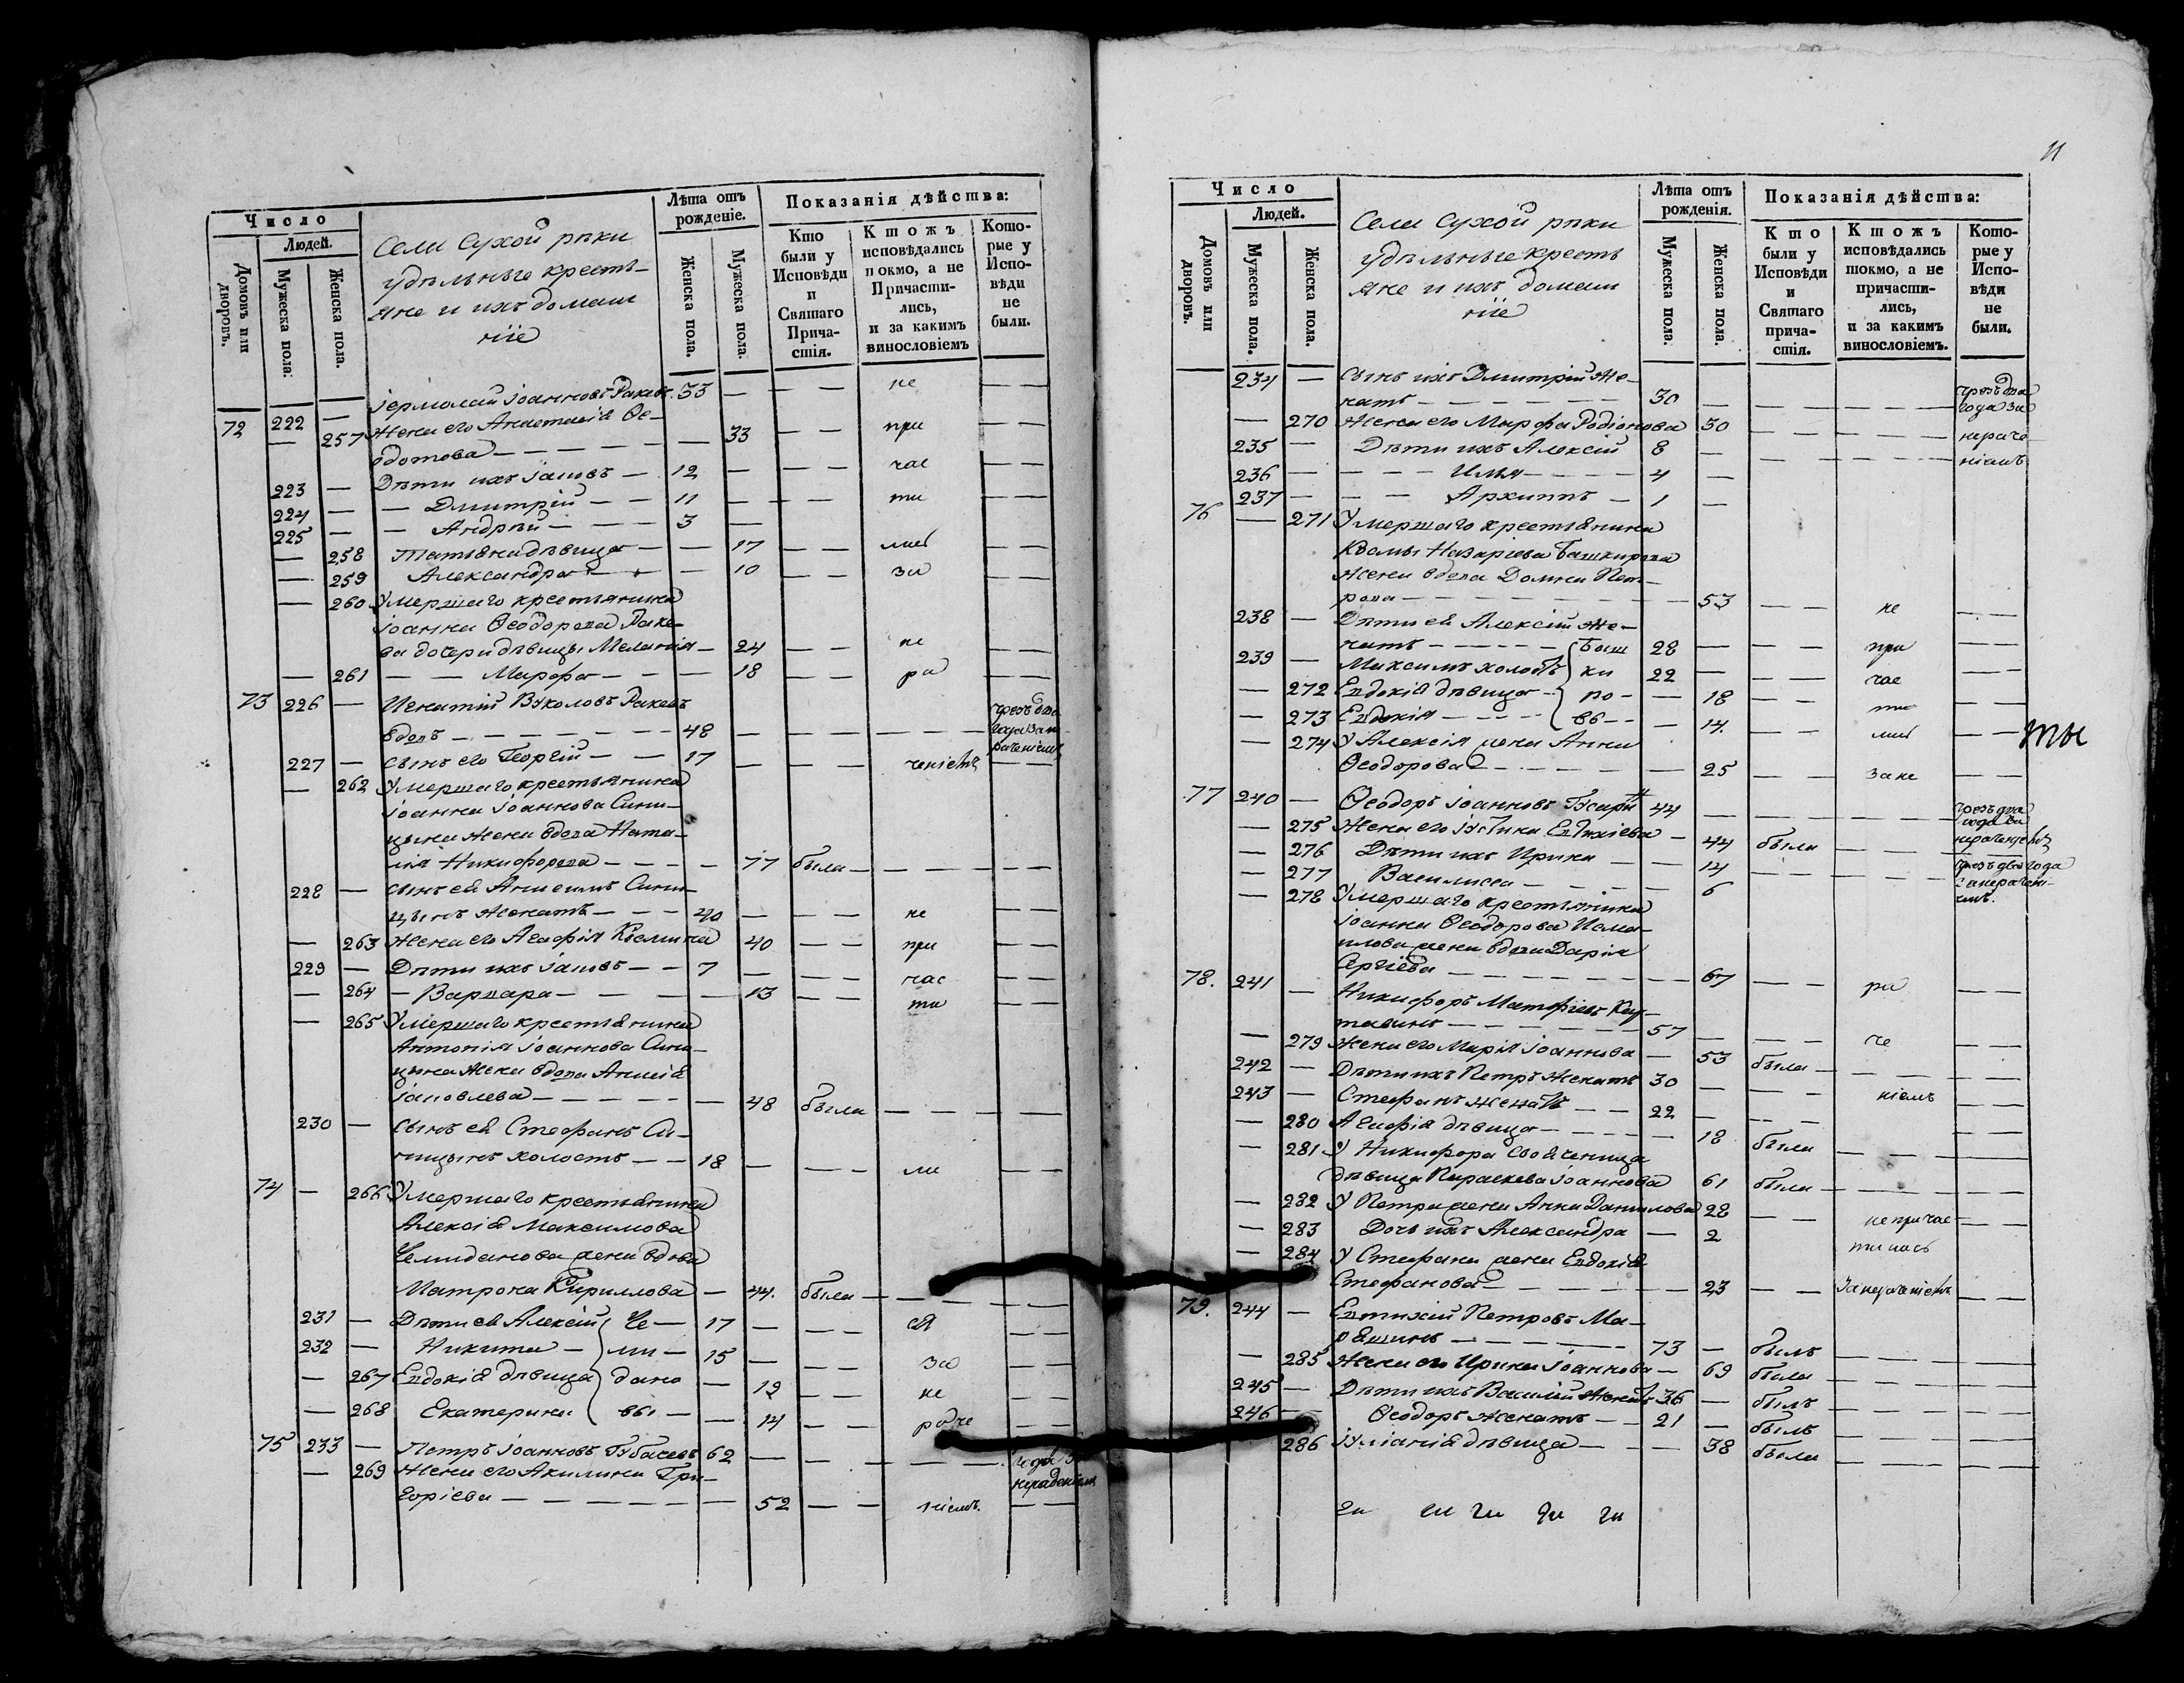 Число
Людей.
Домовъ или дворовъ.
Мужеска пола:
Женска пола.
Села Сухой рѣки
удѣльныѣ кресть-
яне и ихъ домаш
нїе
Лѣта отъ рожденіе.
Женска пола.
Мужеска пола.
Показанія дѣйства:
Кто были у Исповѣди и Святаго Прича-стія.
Ктожъ исповѣдались покмо, а не Причасти-лись, и за какимъ винословіемъ
Кото-рые у Испо-вѣди не были.
72 222 — Іермолай Іоанновъ Раковъ 33 — — — не — —
— 257 Жена его Анастасія Ѳе-
одотова — — — — 33 — — при — —
223 — Дѣти ихъ Іаковъ — 12 — — — час — —
224 — — Дмитрій — — 11 — — — ти — —
225 — — Андрѣй — — — 3 —
— 258 Татьяна дѣвица — — 17 — — лись — —
— 259 Александра — — — 10 — — за — —
— 260 Умершаго крестьянина
Іоанна Ѳеодорова Рако-
ва дочери дѣвицы Меланія — 24 — — не — —
— 261 — — Марфа — — — 18 — — ра — —
73 226 — Игнатій Вуколовъ Раковъ
вдовъ — — — — — — — 48 — — — — — чрезъ два года за не раченіемъ
227 — Сынъ его Георгій — — 17 — — — ченіемъ — —
— 262 Умершаго крестьянина
Іоанна Іоаннова Сини-
цына жена вдова Ната-
лія Никифорова — — — — 77 была — — — — —
228 — Сынъ ея Анисимъ Сини-
цынъ женатъ — — — 40 — — — не — —
— 263 Жена его Агафія Козмина 40 — — при — —
229 — Дѣти ихъ Іаковъ — — 7 — — — час — —
— 264 — Варвара — — — — 13 — — ти — —
— 265 Умершаго крестьянина
Антонія Іоаннова Сини-
цына жена вдова Анисія
Іаковлева — — — — — — 48 была — — — — —
230 — Сынъ ея Стефанъ Си-
ницынъ холостъ — — 18 — — — ли — —
74 — 266 Умершаго крестьянина
Алексія Максимова
Чемиданова жена вдова
Матрона Кириллова — 44. была — — — — —
231 — Дѣти ея Алексій Че — 17 — — — ся — —
232 — Никита — ми — 15 — — — за — —
— 267 Евдокія дѣвица дано — 19 — — не — —
— 268 Екатерина вы — — 14 — — раче — —
75 233 — Петръ Іоанновъ Губачевъ 62 — — — — — года за нерадѣніемъ
— 269 Жена его Акилина Гри-
горіева — — — — — — — 52 — — ніемъ. — —
11
Число
Людей.
Домовъ или дворовъ.
Мужеска пола.
Женска пола.
Села Сухой рѣки
удѣльныѣ кресть
яне и ихъ домаш
нїе
Лѣта отъ рожденія.
Мужеска пола.
Женска пола.
Показанія дѣйства:
Кто были у Исповѣди и Святаго прича-стія.
Ктожъ исповѣдались шокмо, а не причасти-лись, и за какимъ винословіемъ.
Кото-рые у Испо-вѣди не были.
234 — Сынъ ихъ Дмитрій же-
натъ — — — — — 30 — — — — — чрезъ два года за
— 270 Жена его Марфа Родіонова 30 — — — — — нераче-
235 — Дѣти ихъ Алексій 8 — — — — — ніемъ
236 — — — — Илья — — — — 4 —
237 — — — Архиппъ — 1 —
76 — 271 Умершаго крестьянина
Козмы Назаріева Башкирова
жена вдова Домна Пет-
рова — — — — — — — — 53 — — не — —
238 — Дѣти ея Алексій же-
натъ — — — — — Баш 28 — — — при — —
239 — Максимъ холостъ ки 22 — — — час
— 272 Евдокія дѣвица — ро — — 18 — — ти
— 273 Евдокія — — — — вы — — — 14. — — лись — —
ты
— 274 У Алексія жена Анна
Ѳеодорова — — — — — — 25 — — за не — —
77 240 — Ѳеодоръ Іоанновъ 44 — — — — — чрезъ два года за нераченіемъ
— 275 Жена его Іустина — 44 была — — — —
— 276 Дѣти ихъ Ирина — — 14 — — — — чрезъ два года за нерачені-емъ.
— 277 Василисса — — — — — 6
— 278 Умершаго крестьянина
Іоанна Ѳеодорова Изма-
илова жена вдова Дарія
Сергіева — — — — — — — — 67 — — ра — —
78. 241 — Никифоръ Матѳіевъ
— — — — — — 57 — — — че — —
— 279 Жена его Марія Іоаннова — 53 была — — — —
242 — Дѣти ихъ Петръ женатъ 30 — — — ніемъ — —
243 — Стефанъ женатъ — — 22 — — — — —
— 280 Агафія дѣвица — — — — — 18 была — — — —
— 281 У Никифора свояченица
дѣвица Параскева Іоаннова 61 была — — — — —
— 282 У Петра жена Анна Данилова 28 — — не причас- — —
— 283 Дочь ихъ Александра — 2 тилась
— 284 У Стефана жена Евдокія
Стефанова — — — — — — 23 — — За нераченіемъ — —
79. 244 — Евтихій Петровъ Ма-
— — — — — — 73 — былъ — — — —
— 285 Жена его Ирина Іоаннова — 69 была — — — —
245 — Дѣти ихъ Василій женатъ 36 — былъ — — — —
246 — Ѳеодоръ женатъ — — 21 — былъ — — — —
286 Іуліанія дѣвица — — — 38 была — — — —